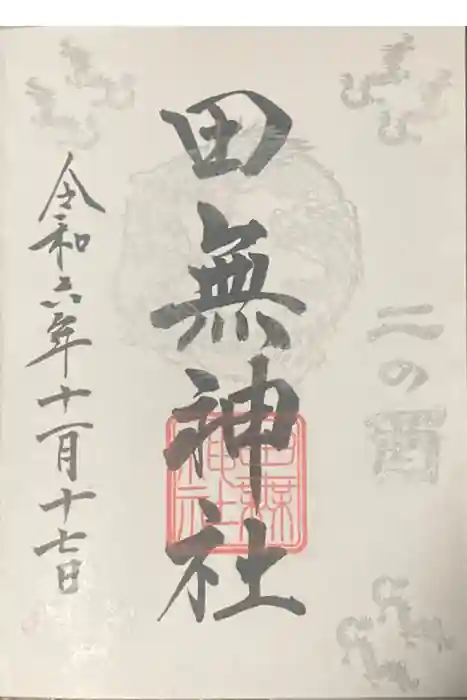 二の酉
田無神社
田無神社
令和六年十一月十七日